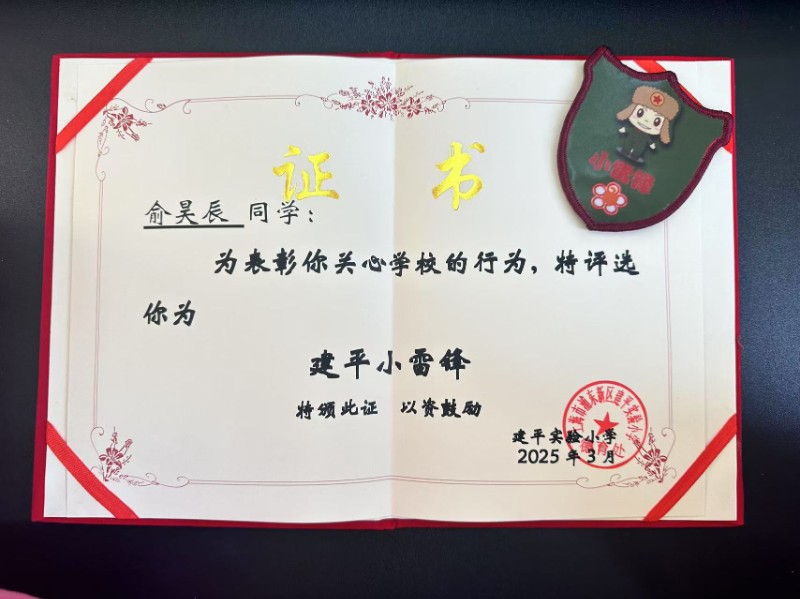 证 书
小雷锋
俞昊辰 同学：
为表彰你关心学校的行为，特评选
你为
建平小雷锋
特颁此证 以资鼓励
上海市浦东新区建平实验小学
德育处
建平实验小学
2025年3月